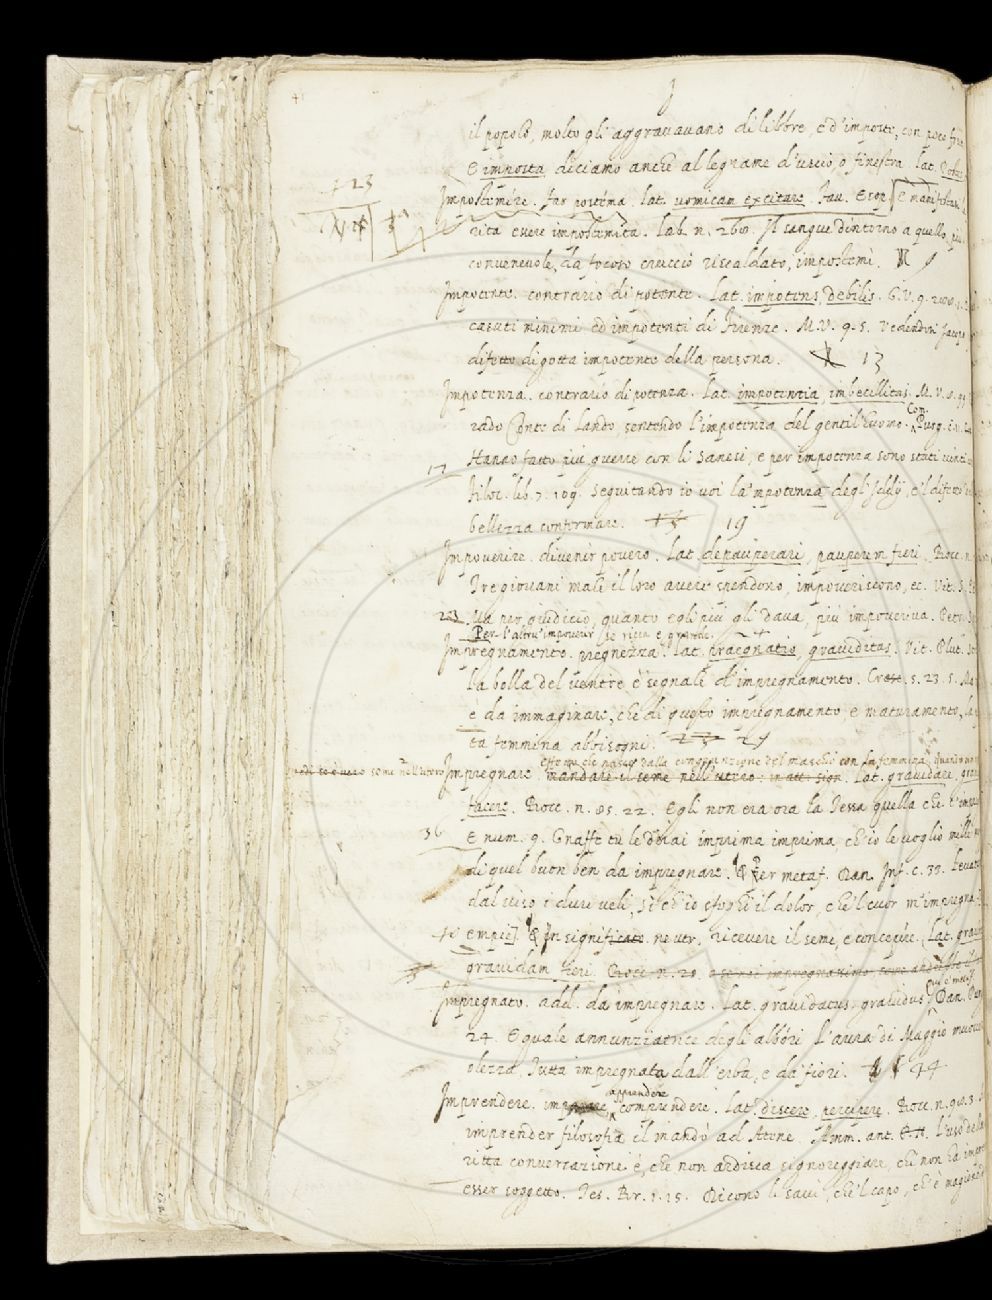 il popolo, molto gli aggravavano di libbre, e d'imposte, con poco
E imposta diciamo anche al legname d'uscio, o finestra. Lat.
+ 23
Impostemire. Far postema. Lat. vomicam excitare. Fav. Esop. E manifesta
vita essere impostemita. Lab. n. 260. Il sangue dintorno a quello, più
convenevole, da focoso cruccio riscaldato, impostemì.
Impotente. contrario di potente. Lat. impotens, debilis. G.V. 9.
casuti minimi ed impotenti di Firenze. M.V. 9. 5. Vedendosi
difetto di gotta impotente della persona. 13
Impotenza. contrario di potenza. Lat. impotentia, imbecillitas. M.V. 8.
rado Conte di Lando, sentendo l'impotenza del gentil'huomo. Com. Purg.
17 Hanno fatto più guerre con li Sanesi, e per impotenza sono stati vinti
Filoc. lib. 7. 109. Seguitando io voi la'mpotenza degl'Iddij, e'l difetto
bellezza confermare. 19
Impoverire. divenir povero. Lat. depauperari, pauperem fieri. Bocc. n.
I tre giovani male il loro avere spendono, impoveriscono, ec. Vit. S.
23 Ma per giudicio, quanto egli più gli dava, più impoveriva. Petr.
Per l'altru'impoverir se ricca e grande.
Impregnamento. pregnezza. Lat. praegnatio, graviditas. Vit. Plut.
La bolla del ventre è segnale d'impregnamento. Cresc. 5. 23. 5.
è da immaginare, che di questo impregnamento e maturamento, la
ta femmina abbisogni. 29
effetto che nasce dalla congiunzione del maschio con la femmina, quando
Impregnare. mandare il seme nell'utero: in att. sign. Lat. gravidare,
facere. Bocc. n. 85. 22. Egli non era ora la Tessa quella che
36 E num. 9. Gnaffe tu le dirai imprima imprima, ch'io le voglio mille
di quel buon ben da impregnare. Per metaf. Dan. Inf. c. 33. Levate
dal viso i duri veli, Sì ch'io sfoghi il dolor, che'l cuor m'impregna
40 empie]. In significato neutr. ricevere il seme, e concepire. Lat.
gravidam fieri. Bocc. n. 20.
Impregnato. add. da impregnare. Lat. gravidatus, gravidus. Dan. Purg.
24. E quale annunziatrice degli albóri L'aura di Maggio muove
olezza, Tutta impregnata dall'erba, e da fiori. 44
apprendere
Imprendere. comprendere. Lat. discere, percipere. Bocc. n.
imprender filosofia il mandò ad Atene. Amm. ant. L'uso della
ritta conversazione è, che non ardisca signoreggiare, chi non ha
esser soggetto. Tes. Br. 1. 15. Dicono li savi, che'l capo, ch'è